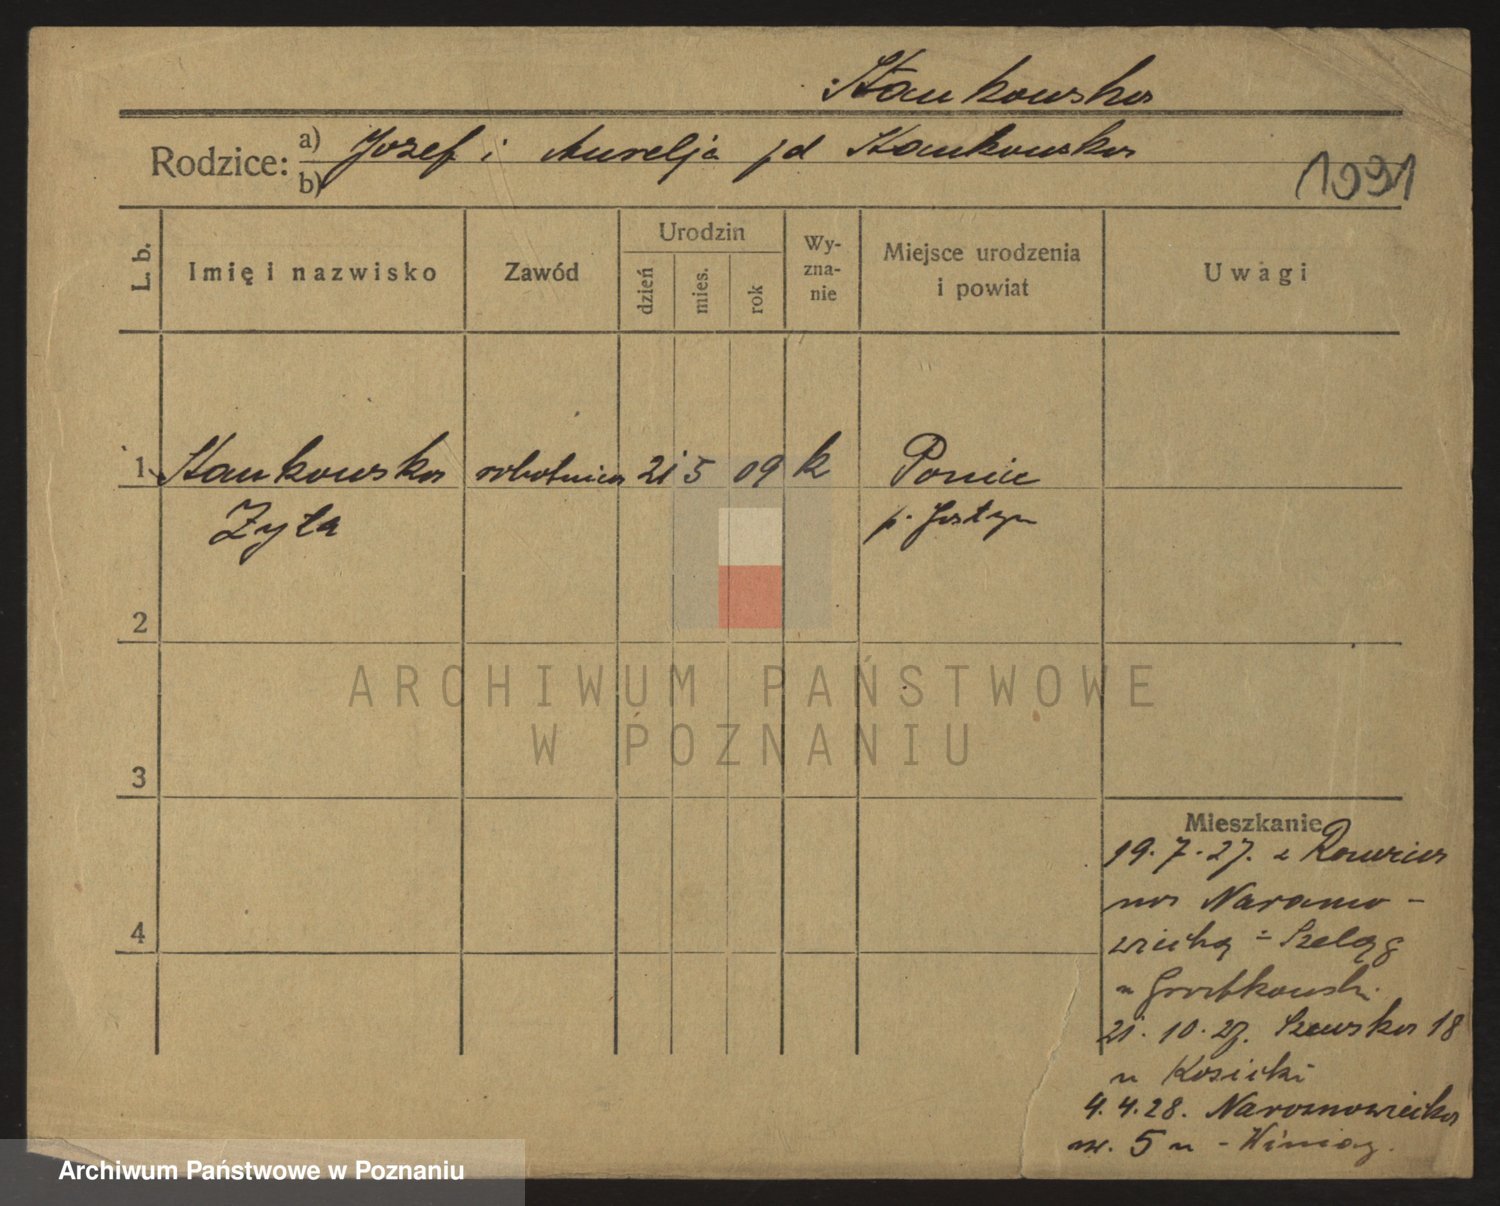 Stankowska
Rodzice: a) Jozef i Aurelja fd Stankowska
b)
1931
L. b.
Imię i nazwisko
Zawód
Urodzin
dzień
mies.
rok
Wy-
zna-
nie
Miejsce urodzenia
i powiat
Uwagi
1 Stankowska robotnica 21 5 09 k Poniec
Zyta p. Gostyn
2
3
4
ARCHIWUM PAŃSTWOWE
W POZNANIU
Mieszkanie
19.7.27. z Rawicza
na Naramo-
wicką - Szeląg
u
21.10.27. Szewska 18
u Kosicki
4.4.28. Naramowicka
nr. 5 u -
Archiwum Państwowe w Poznaniu